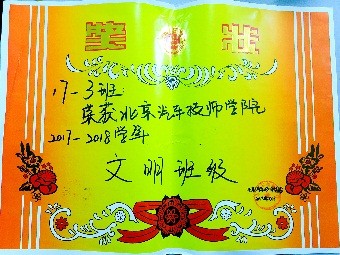 奖 状
17-3班:
荣获北京汽车技师学院
2017-2018学年
文明班级